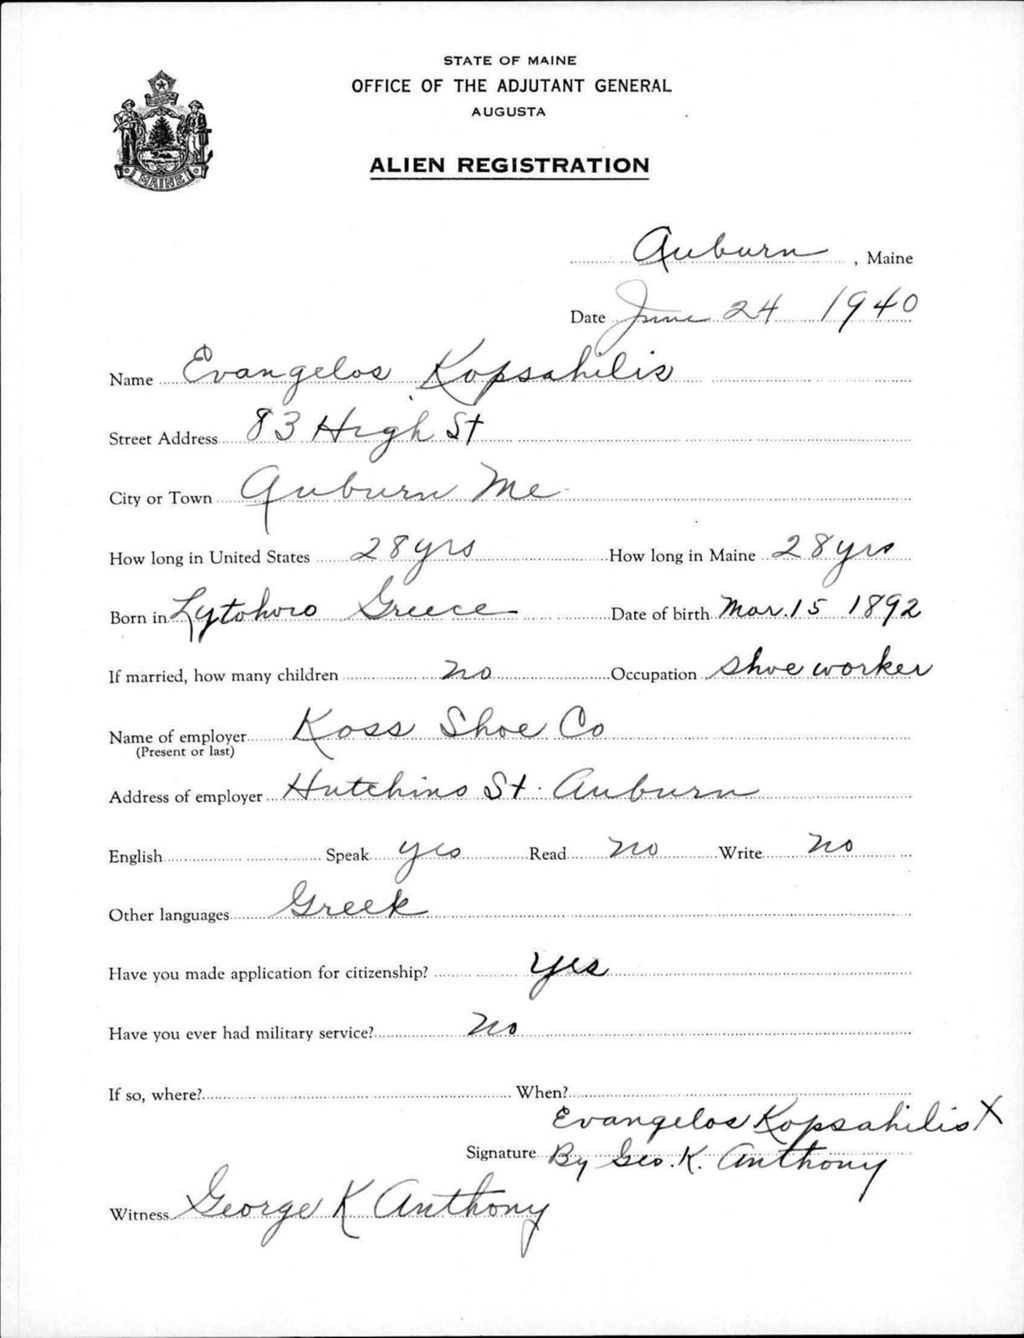 STATE OF MAINE
OFFICE OF THE ADJUTANT GENERAL
AUGUSTA
MAINE
ALIEN REGISTRATION
Auburn, Maine
Date June 24 1940
Name Evangelos Kopsahilis
Street Address 83 High St
City or Town Auburn Me
How long in United States 28 yrs How long in Maine 28 yrs
Born in Lytohoro Greece Date of birth Mar. 15 1892
If married, how many children no Occupation Shoe worker
Name of employer Koss Shoe Co
(Present or last)
Address of employer Hutchins St. Auburn
English Speak yes Read no Write no
Other languages Greek
Have you made application for citizenship? yes
Have you ever had military service? no
If so, where? When?
Evangelos Kopsahilis X
Signature By Geo. K. Anthony
Witness George K Anthony